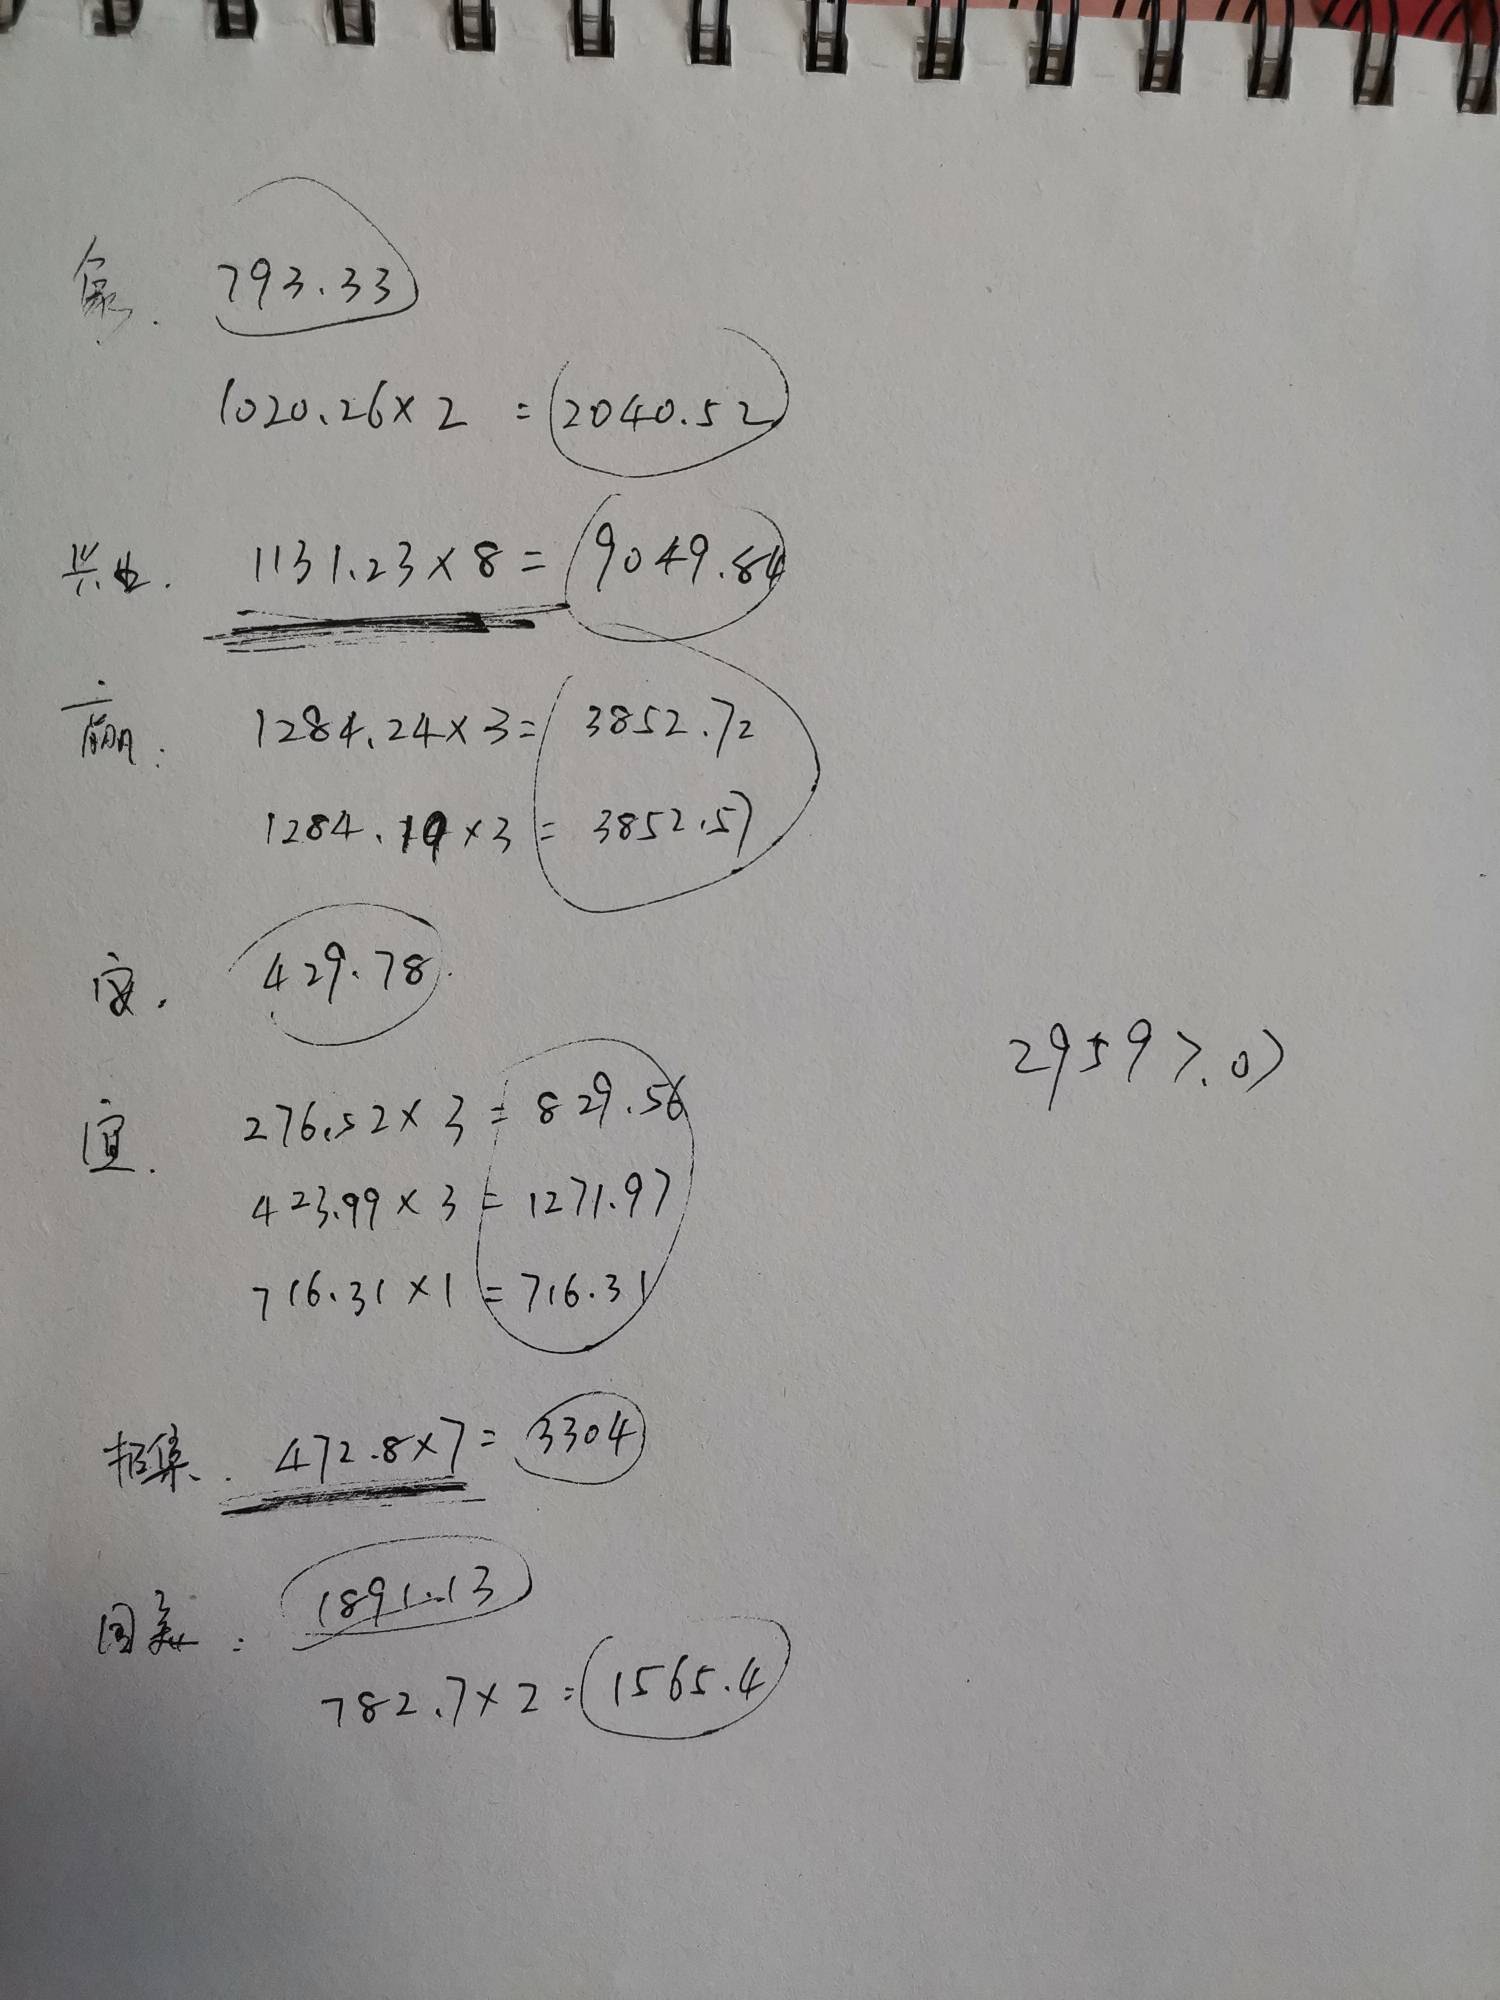 793.33
1020.26×2 =2040.52
兴业. 1131.23×8=9049.84
赢. 1284.24×3=3852.72
1284.19×3=3852.57
429.78.
宜. 276.52×3=829.56
423.99×3=1271.97
716.31×1=716.31
29597.07
招集. 472.8×7=3304
国美: 1891.13
782.7×2=1565.4